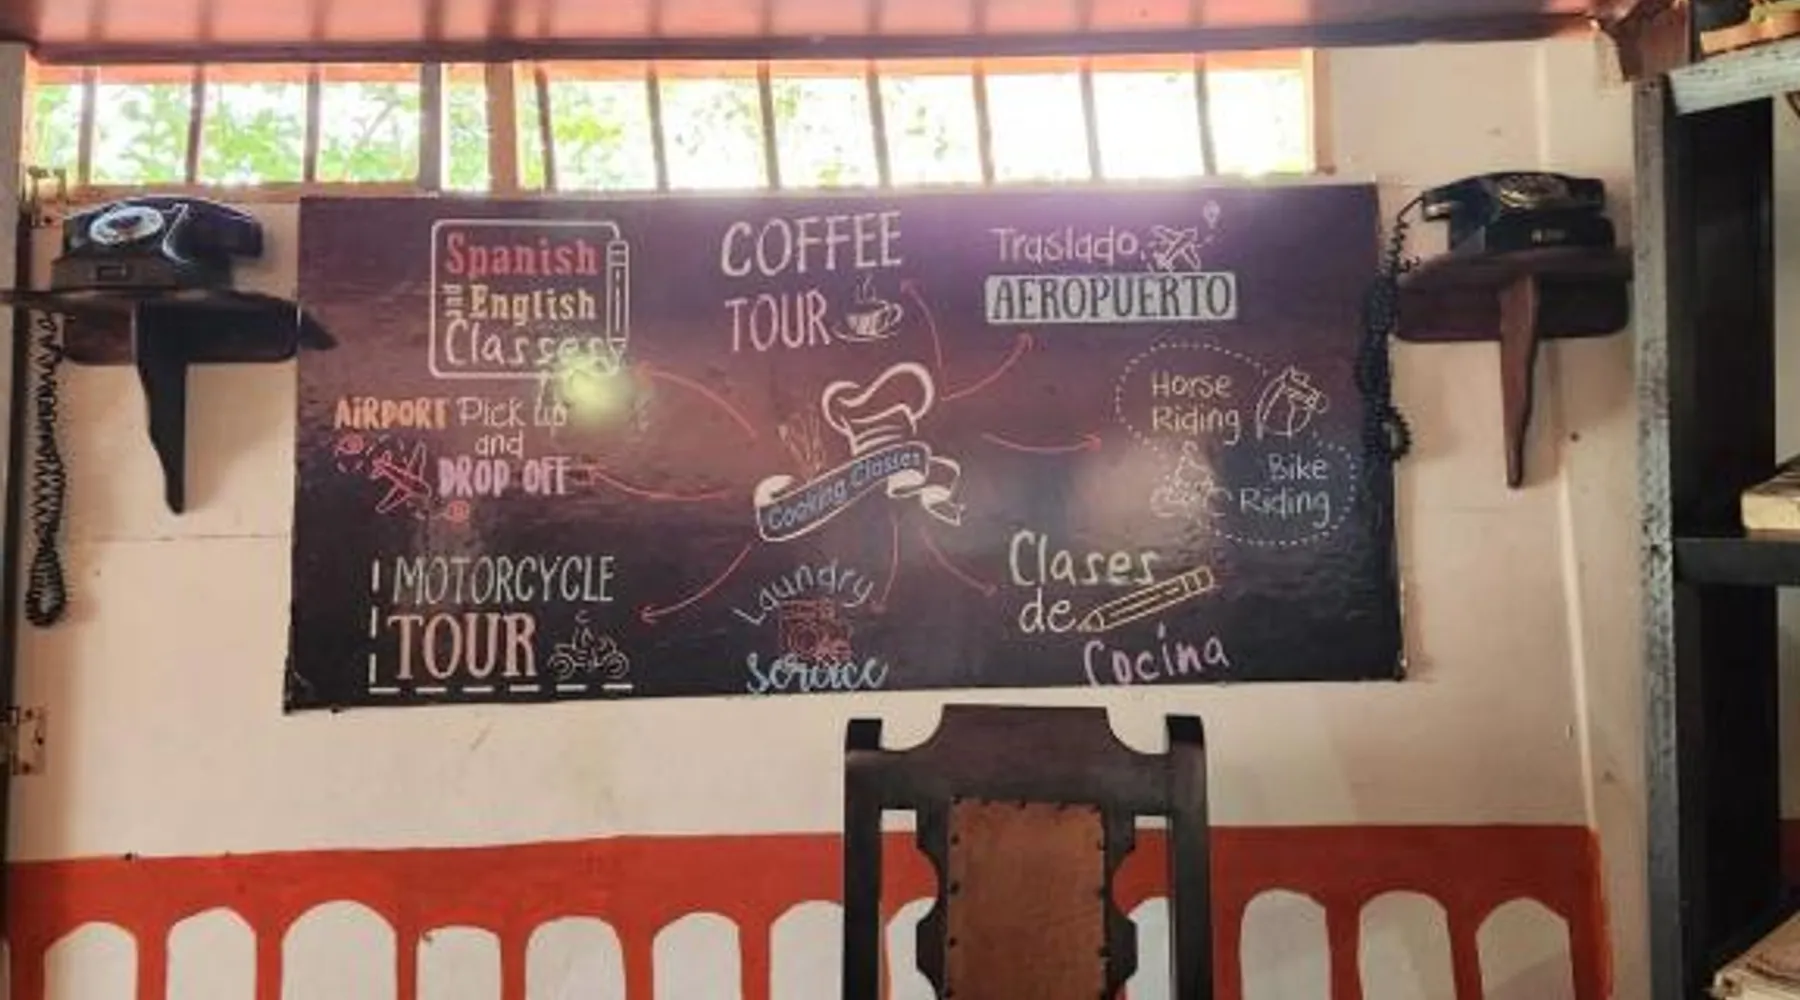 Spanish
and English
Classes
COFFEE
TOUR
Traslado
AEROPUERTO
AiRPORT Pick up
and
DROP OFF
Horse
Riding
Bike
Riding
Cooking Classes
MOTORCYCLE
TOUR
Laundry
Service
Clases
de
Cocina